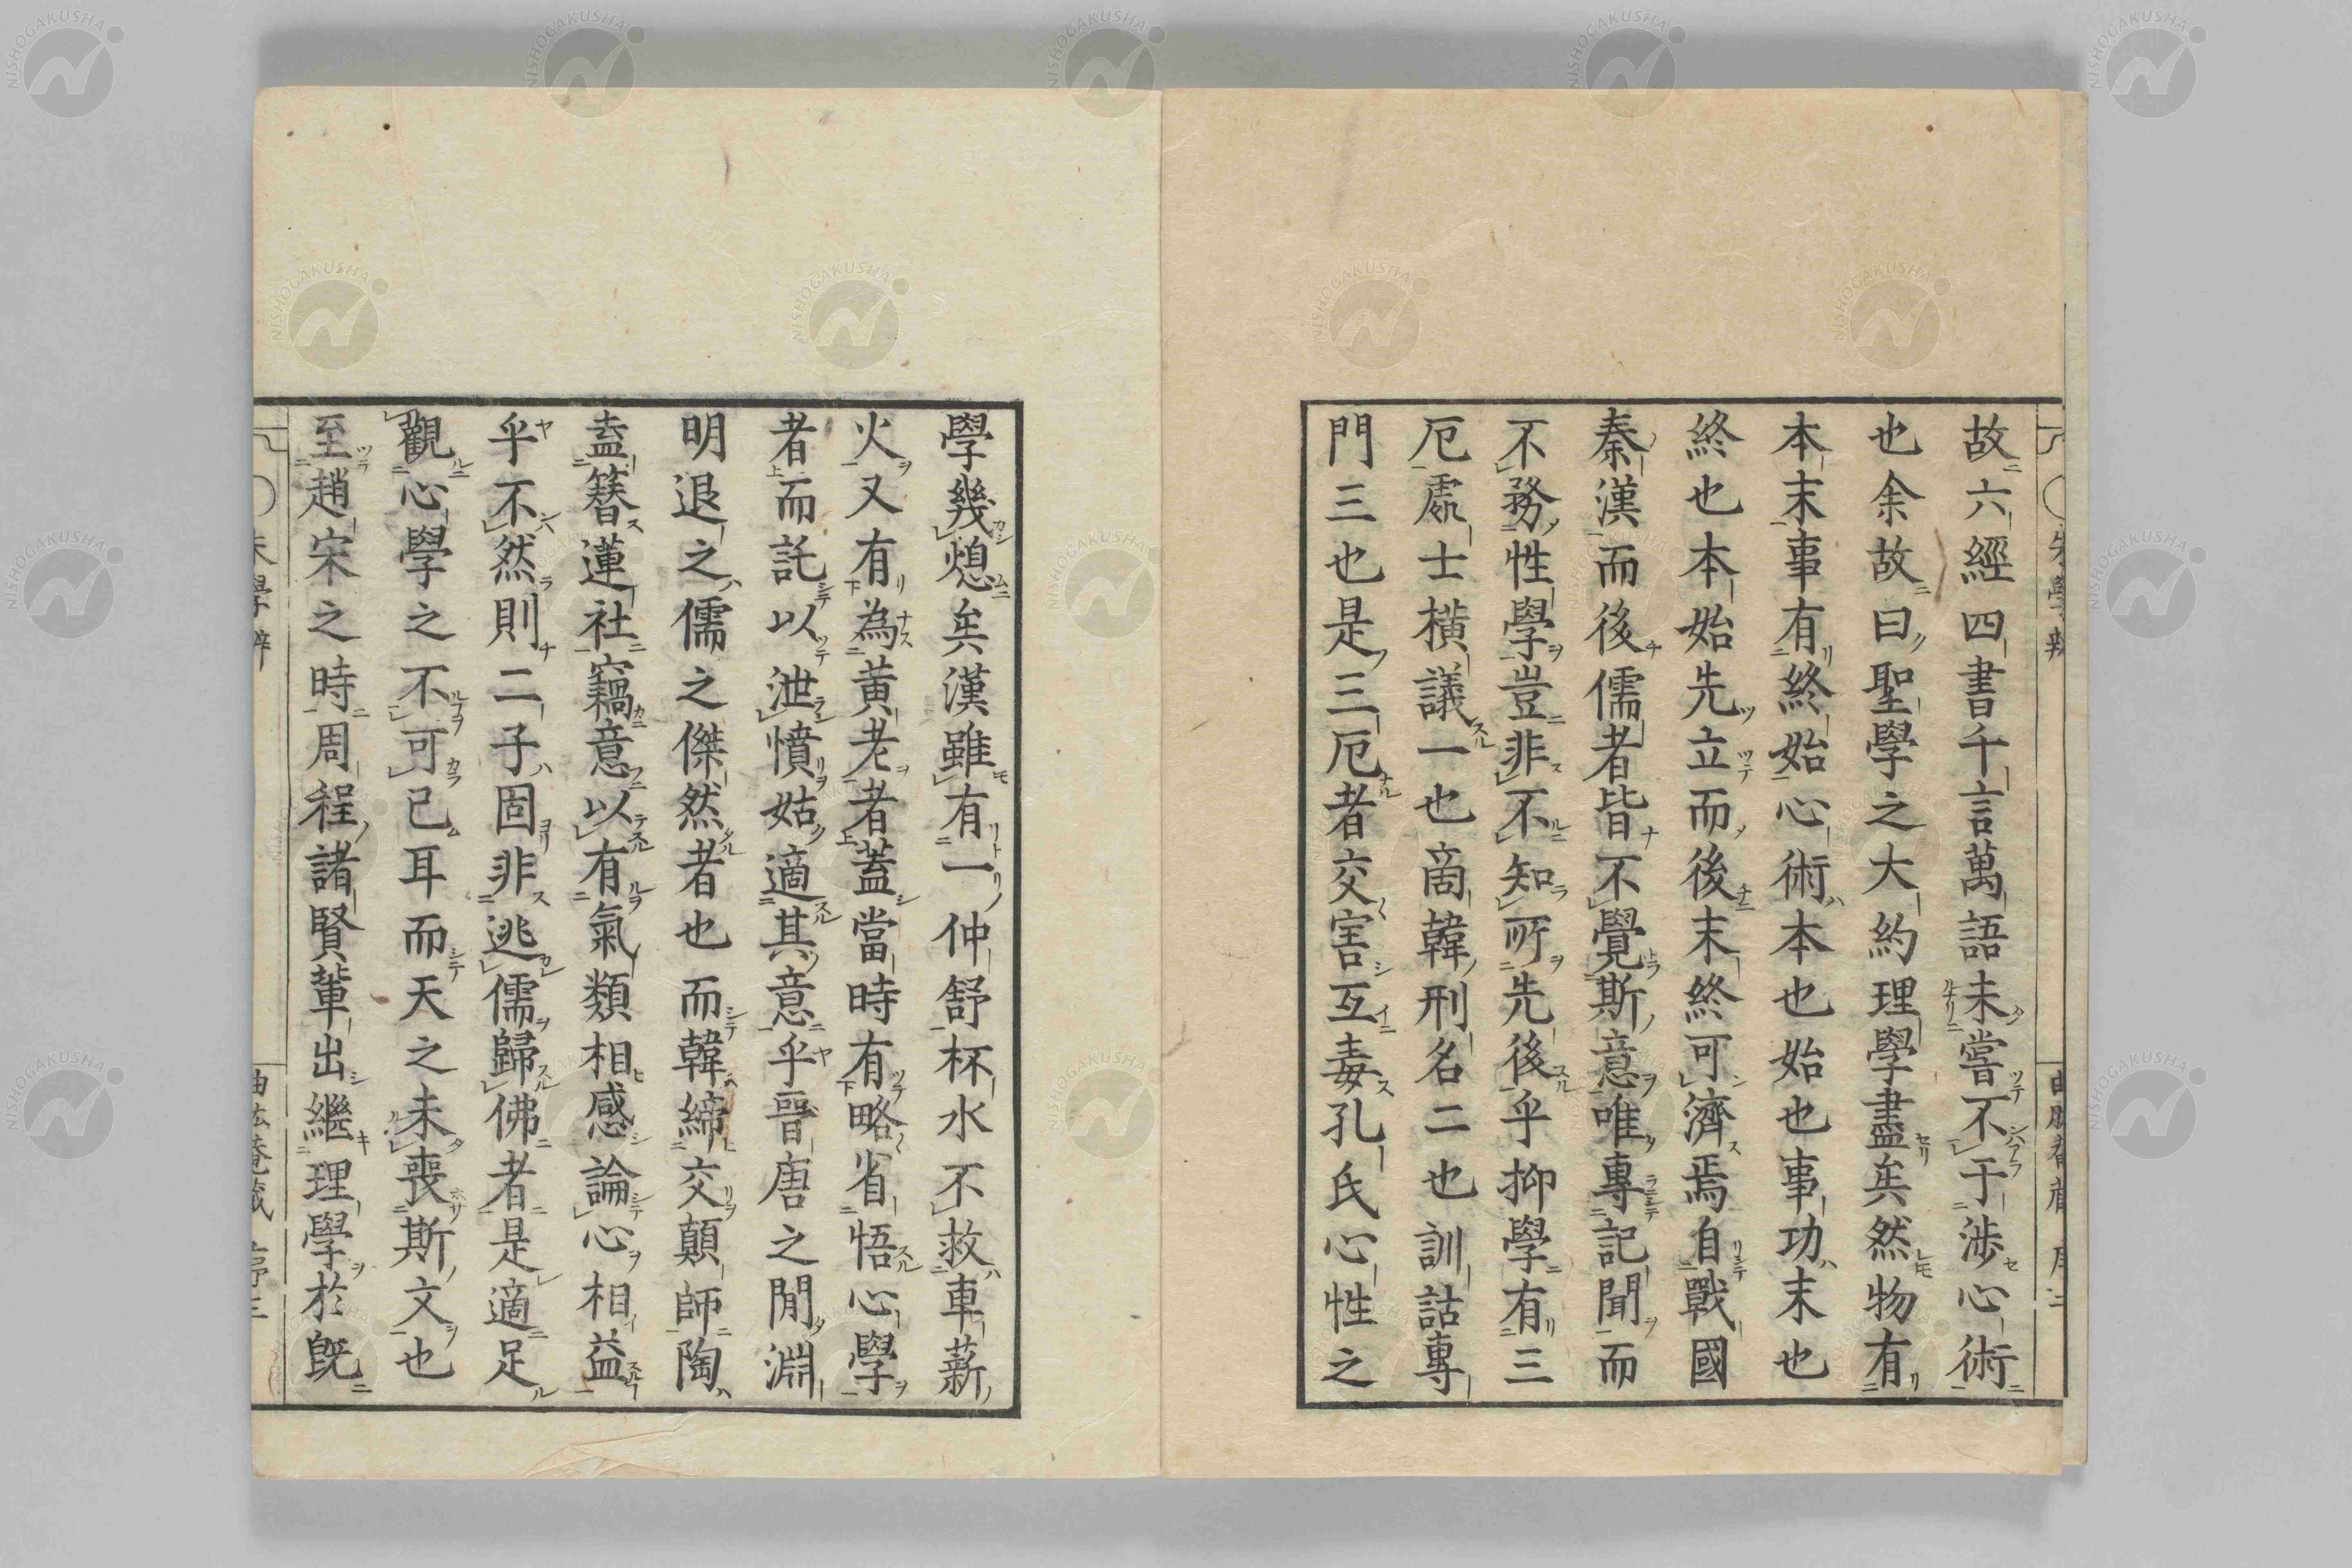 故六經四書千言萬語未嘗不于渉心術
也余故曰聖學之大約理學盡矣然物有
本末事有終始心術本也始也事功末也
終也本始先立而後末終可濟焉自戰國
秦漢而後儒者皆不覺斯意唯專記聞而
不務性學豈非不知所先後乎抑學有三
厄處士横議一也商韓刑名二也訓詁專
門三也是三厄者交害互毒孔氏心性之
學幾熄矣漢雖有一仲舒杯水不救車薪
火又有為黄老者蓋當時有略省悟心學
者而託以泄憤姑適其意乎晉唐之間淵
明退之儒之傑然者也而韓締交顛師陶
盍簪蓮社竊意以有氣類相感論心相益
乎不然則二子固非逃儒歸佛者是適足
觀心學之不可已耳而天之未喪斯文也
至趙宋之時周程諸賢輩出繼理學於既
朱學辨
序三
NISHOGAKUSHA